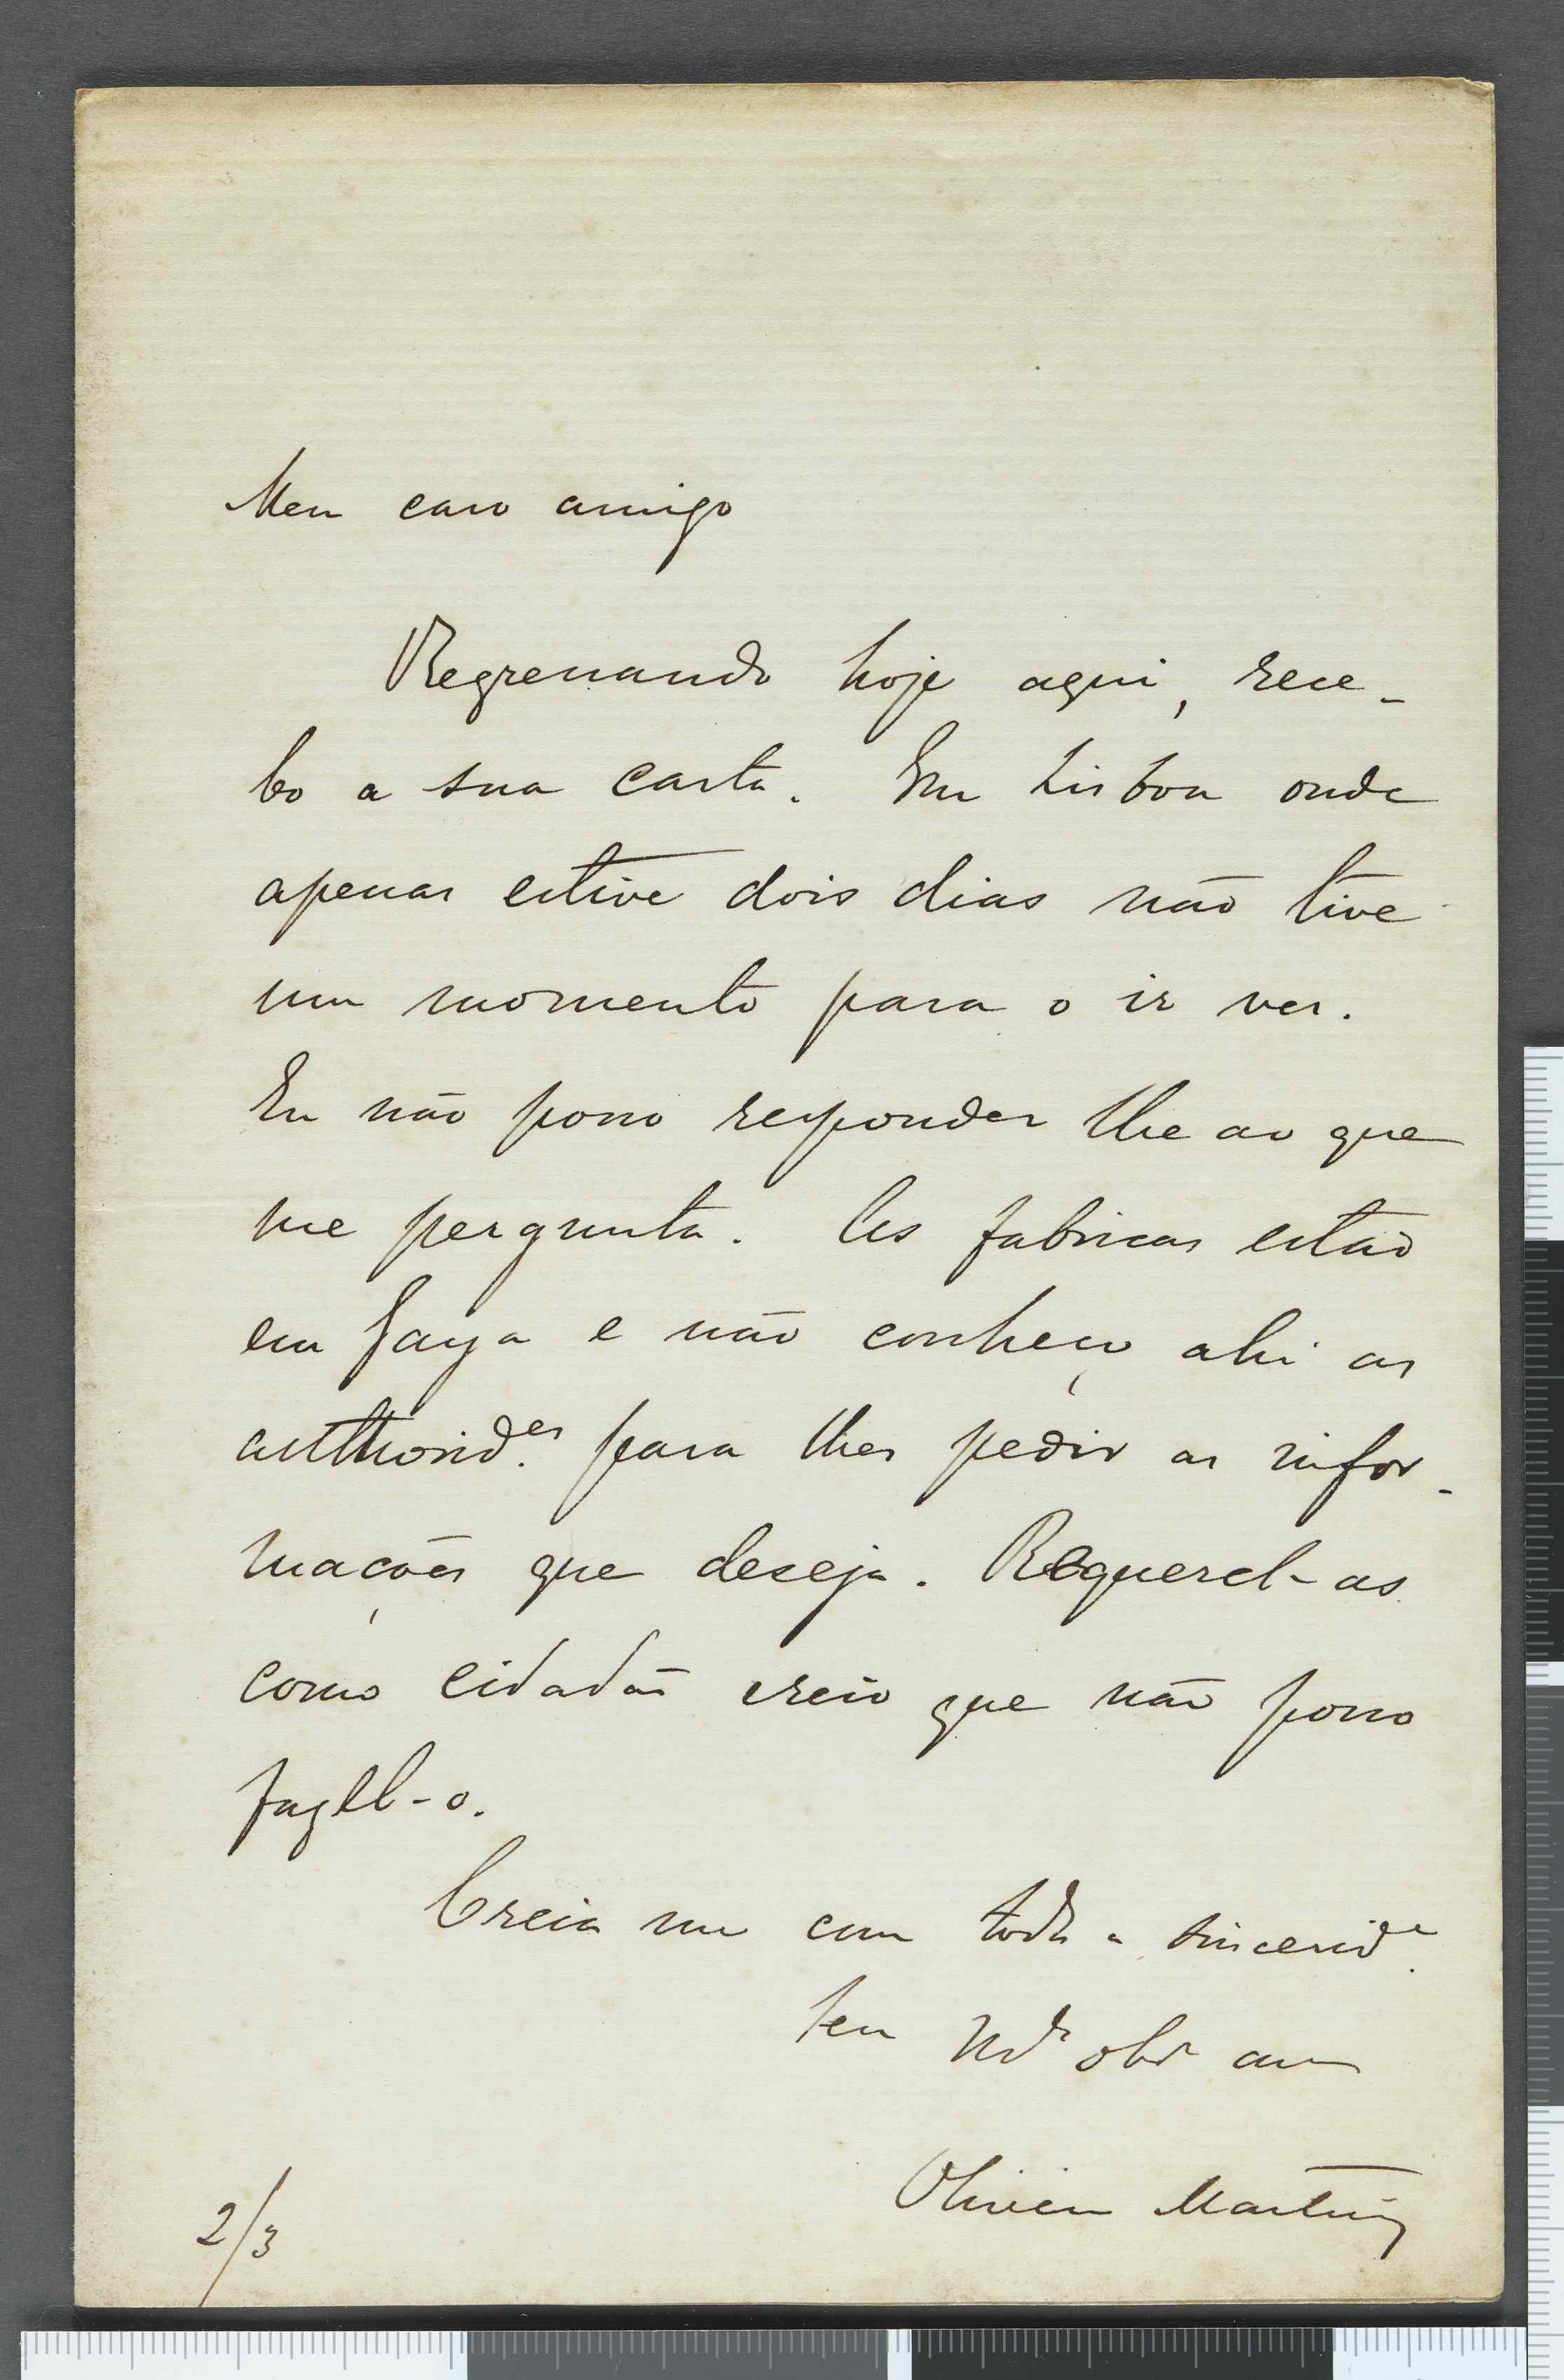 Meu caro amigo
Regressando hoje aqui, rece-
bo a sua carta. Em Lisboa onde
apenas estive dois dias não tive
um momento para o ir ver.
Eu não posso responder lhe ao que
me pergunta. As fabricas estão
em Gaya e não conheço ahi as
authorid.es para lhes pedir as infor-
mações que deseja. Requerel-as
como cidadão creio que não posso
fazel-o.
Creia me com toda a sincerid.e
Seu obr am
Oliveira Martins
2/3